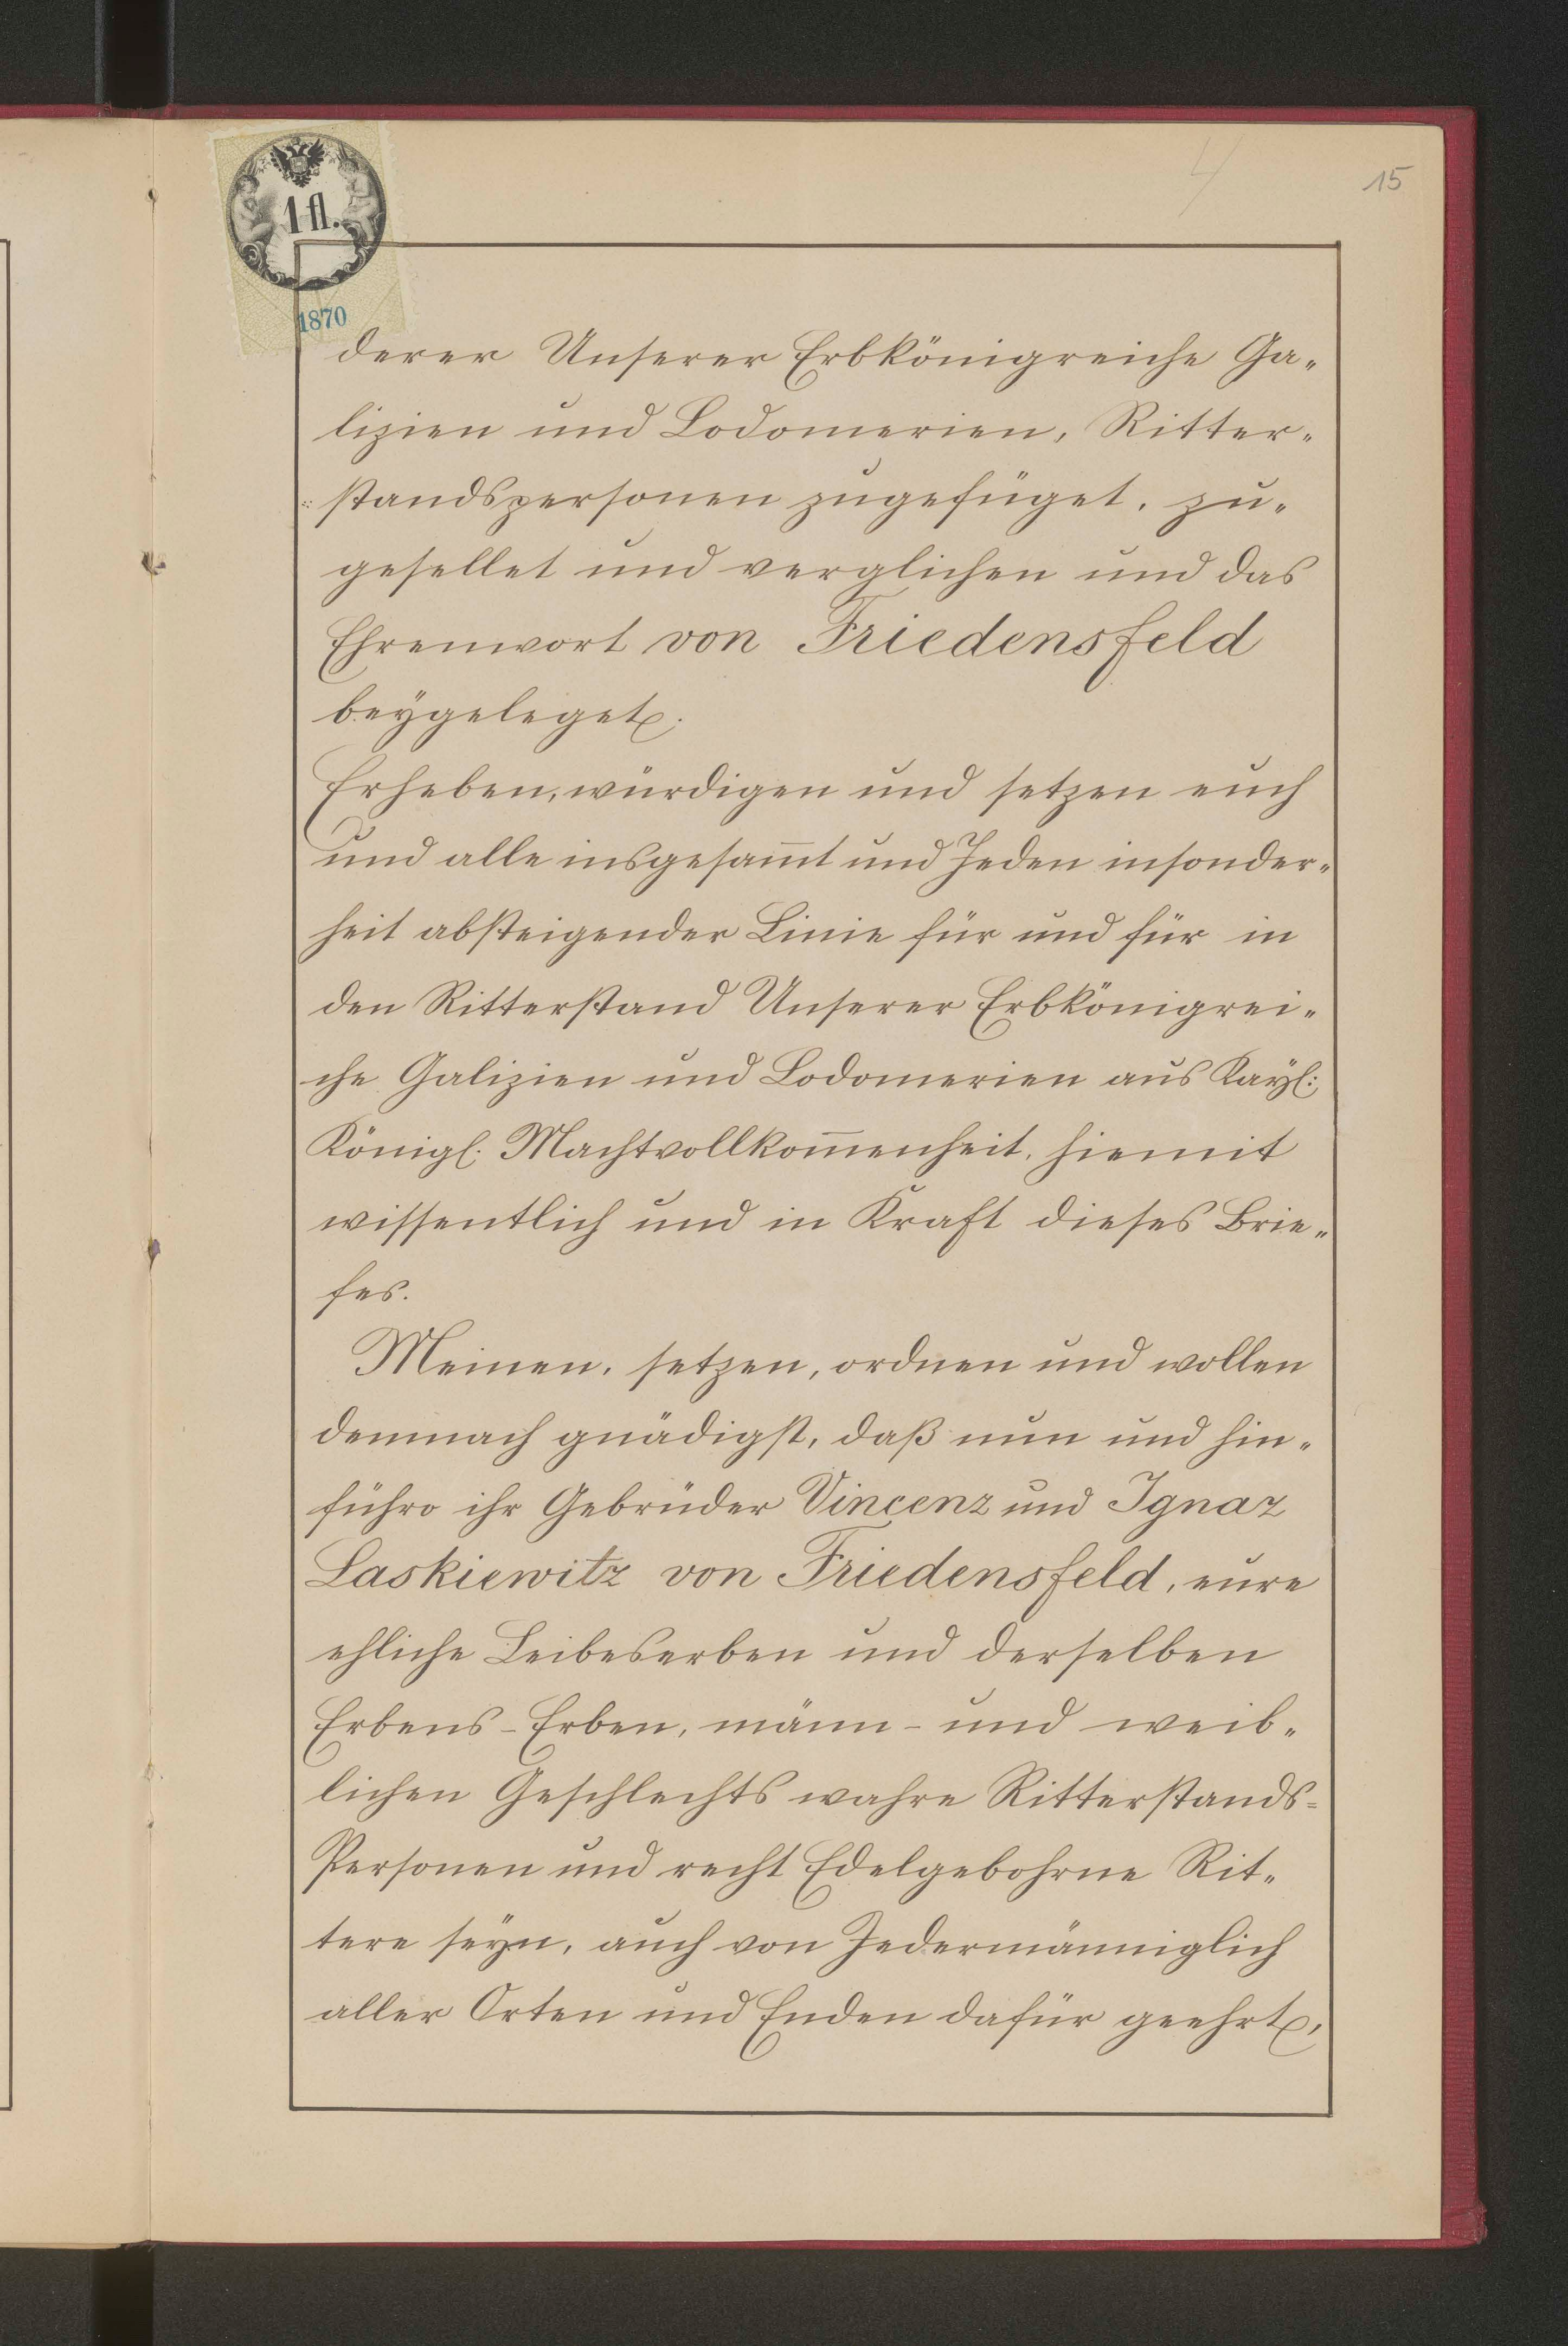 4
15
1 fl.
1870
derer Unserer Erbkönigreiche Ga„
lizien und Lodomerien, Ritter„
standspersonen zugefüget, zu„
gesellet und verglichen und das
Ehrenwort von Friedensfeld
beygeleget.
Erheben, würdigen und setzen euch
und alle insgesam̅t und Jeden insonder„
heit absteigender Linie für und für in
den Ritterstand Unserer Erbkönigrei„
che Galizien und Lodomerien aus Kayl:
Königl: Machtvollkom̅enheit, hiemit
wissentlich und in Kraft dieses Brie„
fes.
Meinen, setzen, ordnen und wollen
demnach gnädigst, daß nun und hin„
führo ihr Gebrüder Vincenz und Ignaz
Laskiewitz von Friedensfeld, eure
ehliche Leibeserben und derselben
Erbens-Erben, männ- und weib„
lichen Geschlechts wahre Ritterstands=
Personen und recht Edelgebohrne Rit„
tere seyn, auch von Jedermänniglich
aller Orten und Enden dafür geehrt,